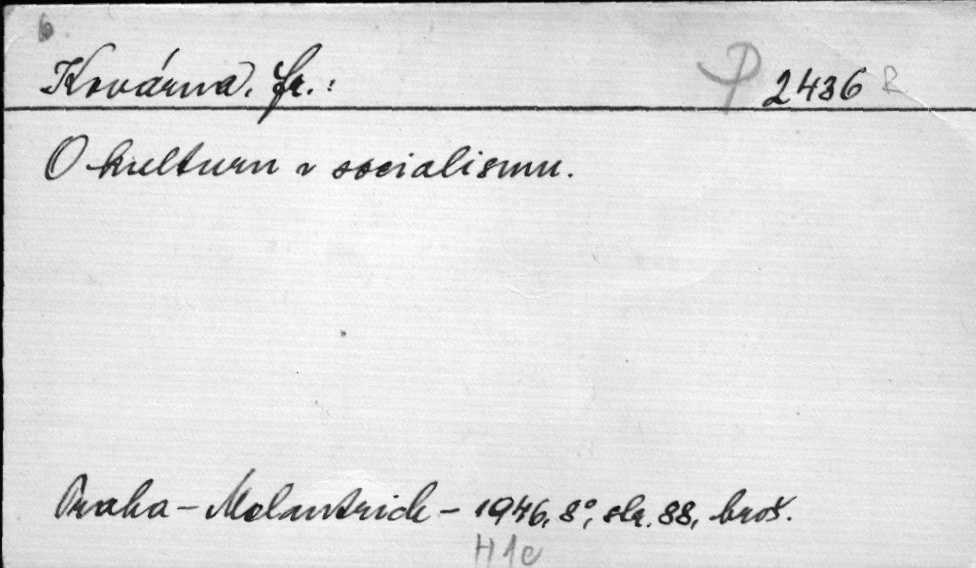 6
Kovárna, Fr.: P 2436 R
O kulturu v socialismu.
Praha - Melantrich - 1946, 8°, str. 88, brož.
H1c